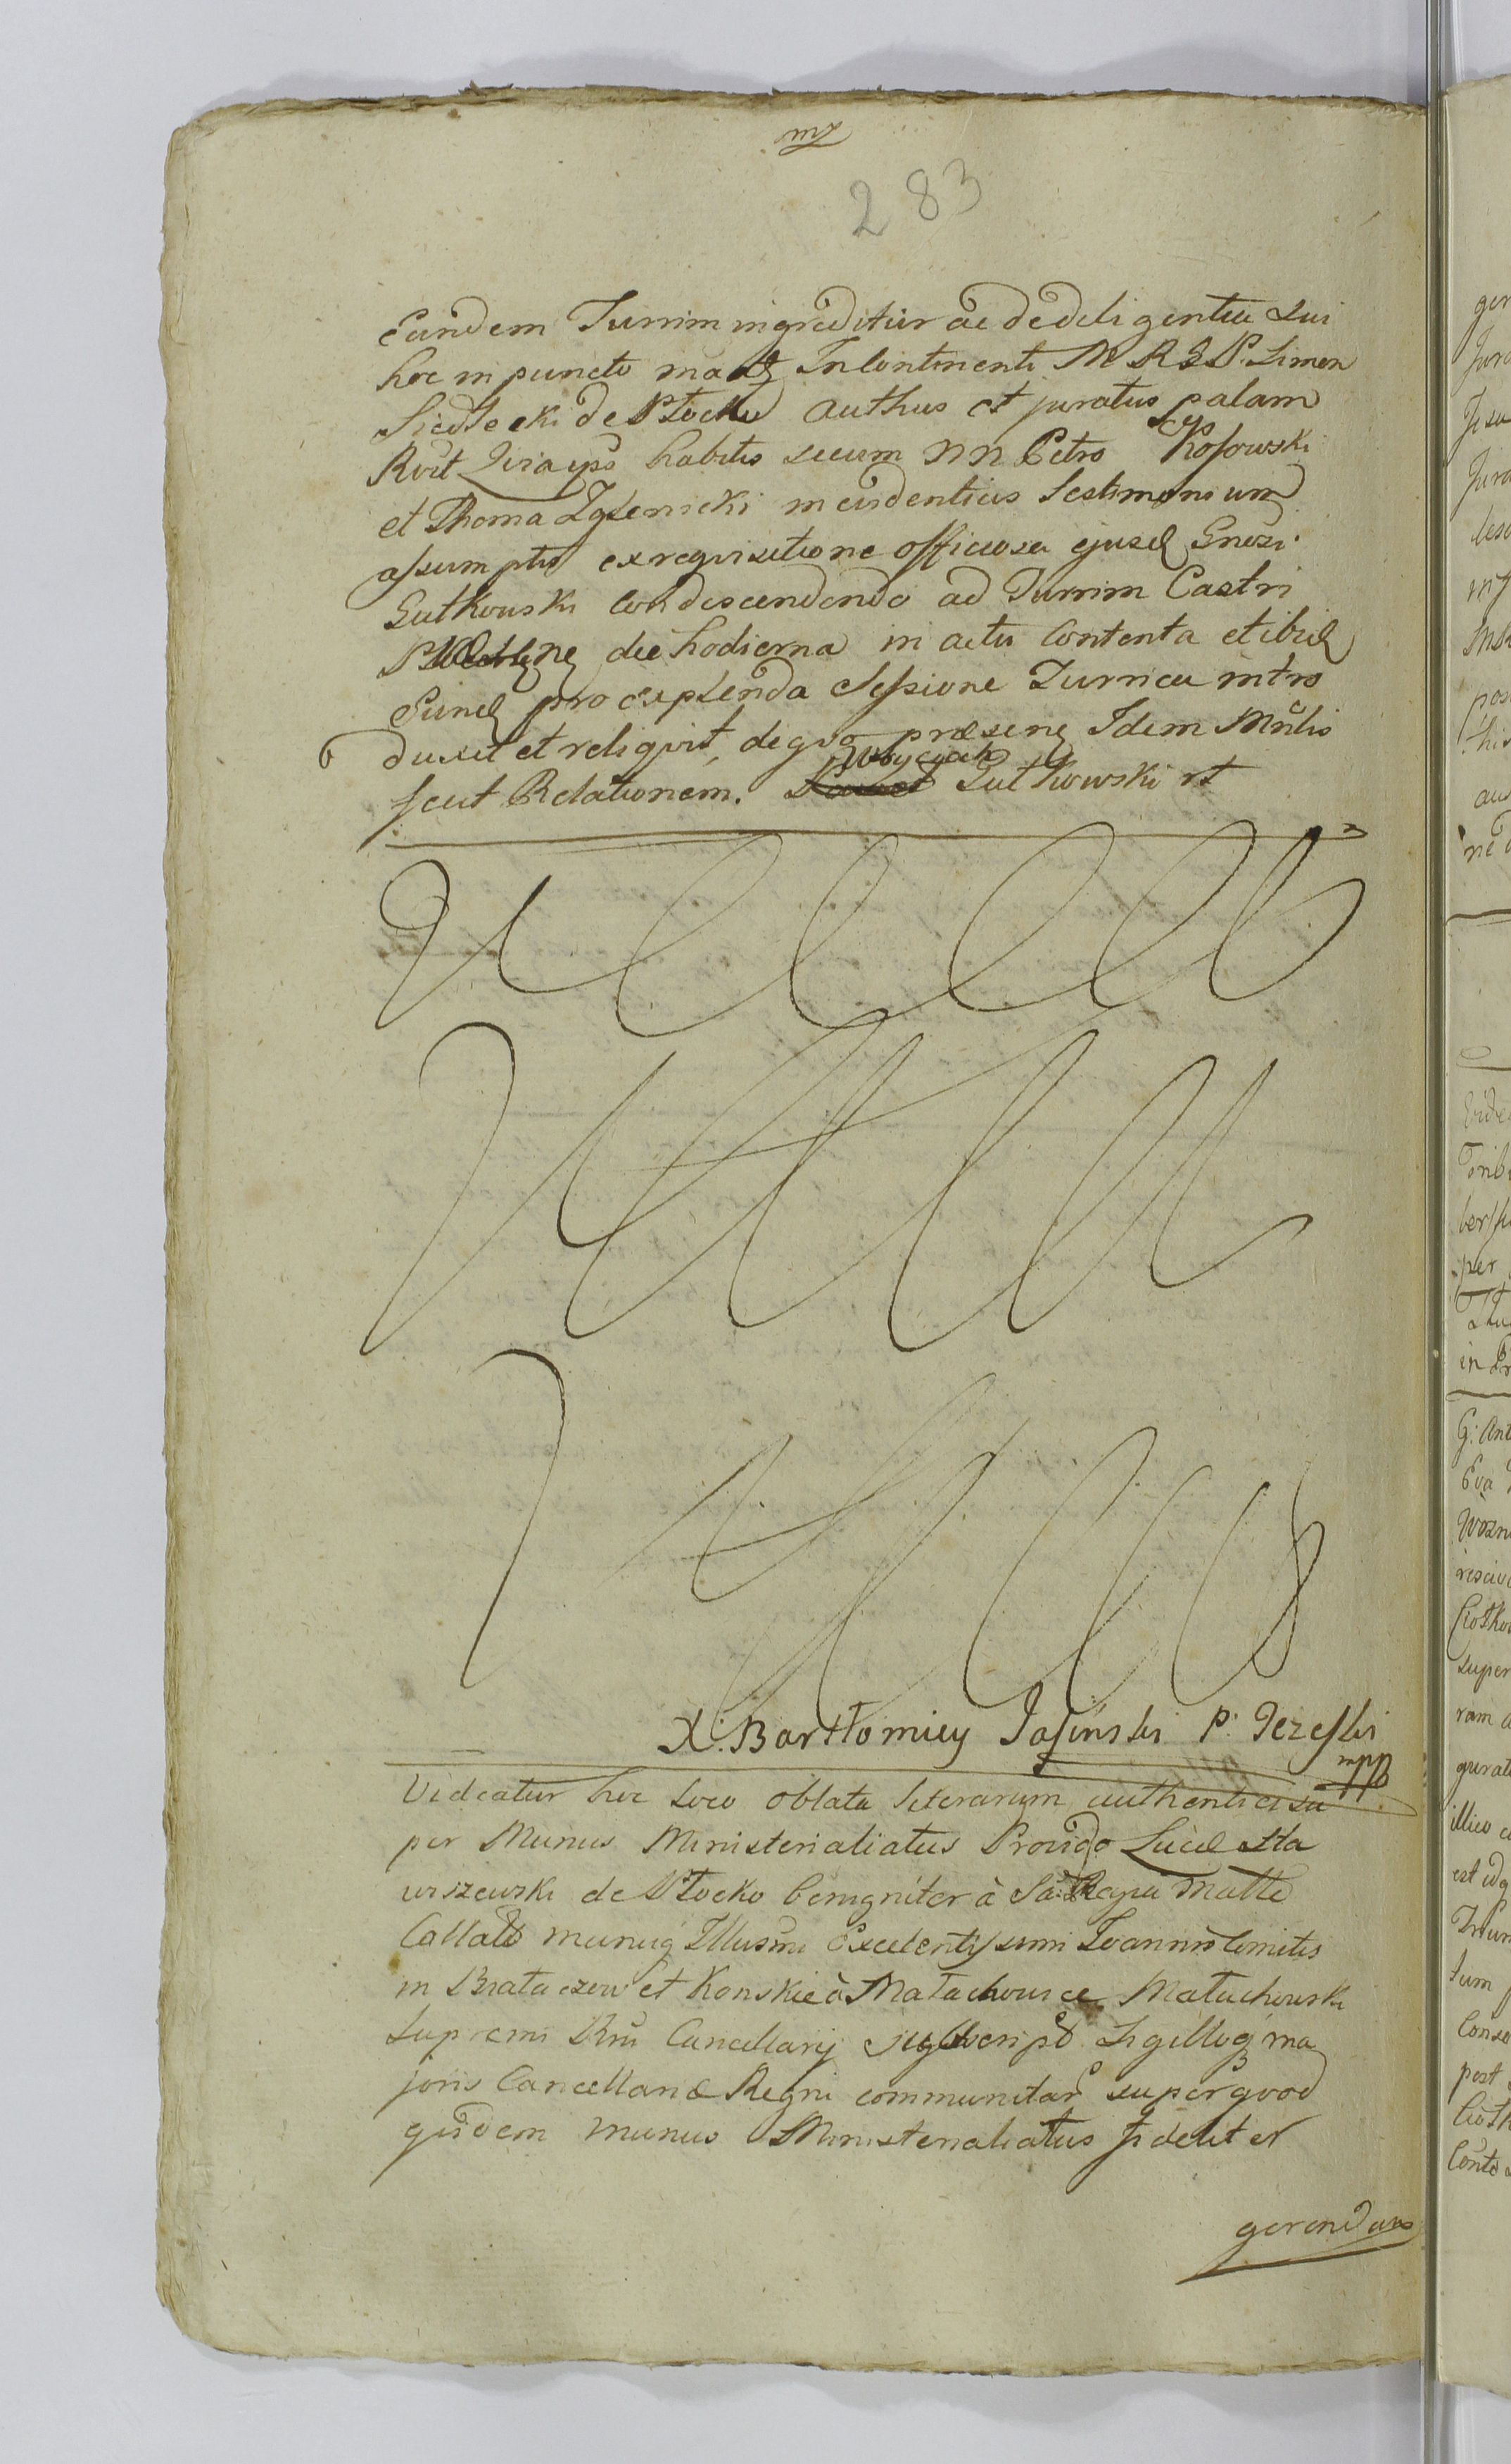 283
Eandem Turrim ingreditur ac de diligentia sui
hoc in puncto Incontinenti M R G P. Simon
Siedlecki de Płocko authus et juratus palam
Rvit Quia ipse habitis secum NN Petro Kossowski
et Thoma Zglenicki in evidentius Testimonium
assumptis ex requisitione officiosa ejusd Gnosi
Gutkowski condescendendo ad Turrim Castri
die hodierna in actu contenta et ibid
Eund pro explenda Sessione Turrica intro
duxit et reliquit, de quo præsens Idem Mnlis
fecit Relationem. Woyciech Gutkowski rt
X. Bartłomiey Jasinski P.
mpp
Videatur hoc loco oblata literarum authentica
per Munus Ministerialiatus Provido Lucæ Sta
wszewski de Płocko benigniter à Sa: Regia Matte
Collato Illusmi Excelentissimi Joannis Comitis
in et Konskie à Małachowice Małachowski
Supremi Rni Cancellarij Sigilloq ma
joris Cancellariæ Regni communitar super quod
quidem munus Ministerialiatus fideliter
gerendum